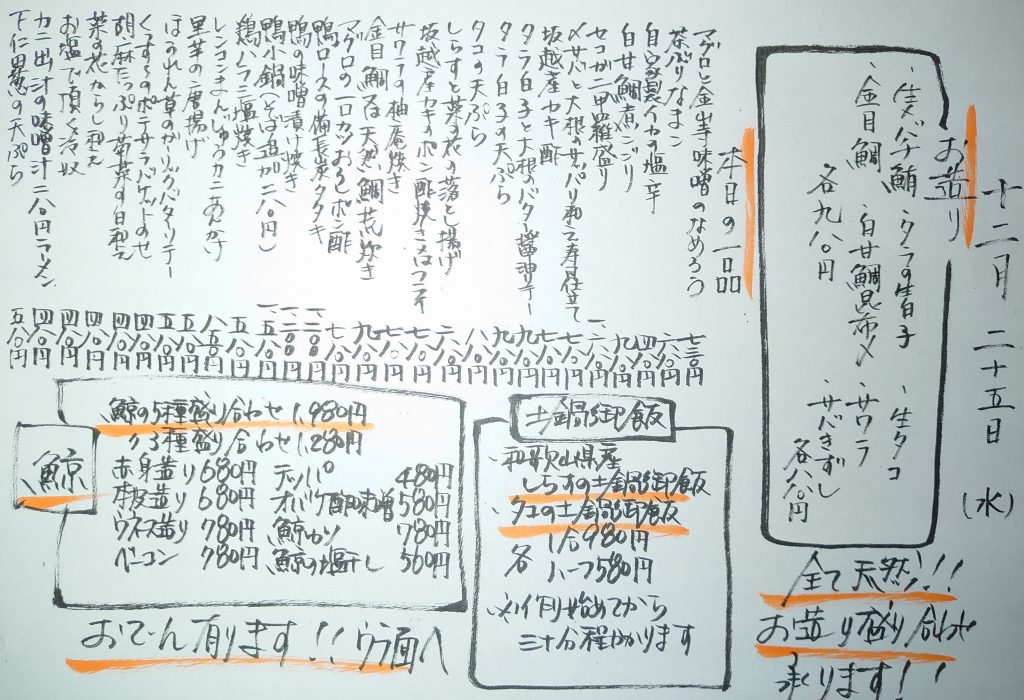 十二月二十五日(水)
お造り
・生バチ鮪 ・タラの生白子 ・生タコ
・金目鯛 ・白甘鯛昆布〆 ・サワラ
・サバきずし
各九八〇円
各八八〇円
全て天然!!
お造り盛り合わせ
承ります!!
本日の一品
マグロと金山寺味噌のなめろう 七三〇円
茶ぶりなまこ 六八〇円
自家製イカの塩辛 四八〇円
白甘鯛煮こごり
セコガニ甲羅盛り
〆サバと大根のサッパリ和え寿仕立て
坂越産カキ酢
タラ白子と大根のバター醤油ソテー
タラ白子の天ぷら
タコの天ぷら
しらすと菜の花の落とし揚げ
坂越産カキのポン酢焼きorカキフライ
サワラの柚庵焼き
金目鯛又は天然鯛荒炊き
マグロの一口カツおろしポン酢
鴨ロースの備長炭タタキ
鴨の味噌漬け焼き
鴨小鍋(そば追加二八〇円)
鶏ハラミ塩焼き
レンコンまんじゅうカニあんかけ
里芋の唐揚げ
ほうれん草のガーリックバターソテー
くんすりのポテサラバケットのせ
胡麻たっぷり菊菜の白和え 四八〇円
菜の花からし和え 四八〇円
お塩で頂く冷奴 四八〇円
カニ出汁の味噌汁二八〇円ラーメン 四八〇円
下仁田葱の天ぷら 五八〇円
鯨
鯨の5種盛り合わせ 1,980円
〃3種盛り合わせ 1,280円
赤身造り 680円 テッパ 480円
本皮造り 680円 オバケ酢味噌 580円
ウネス造り 780円 鯨カツ 780円
ベーコン 780円 鯨の塩干し 500円
おでん有ります!!ウラ面へ
土鍋御飯
・和歌山県産
しらすの土鍋御飯
・タコの土鍋御飯
各 1合980円
ハーフ580円
※作り始めてから
三十分程かかります